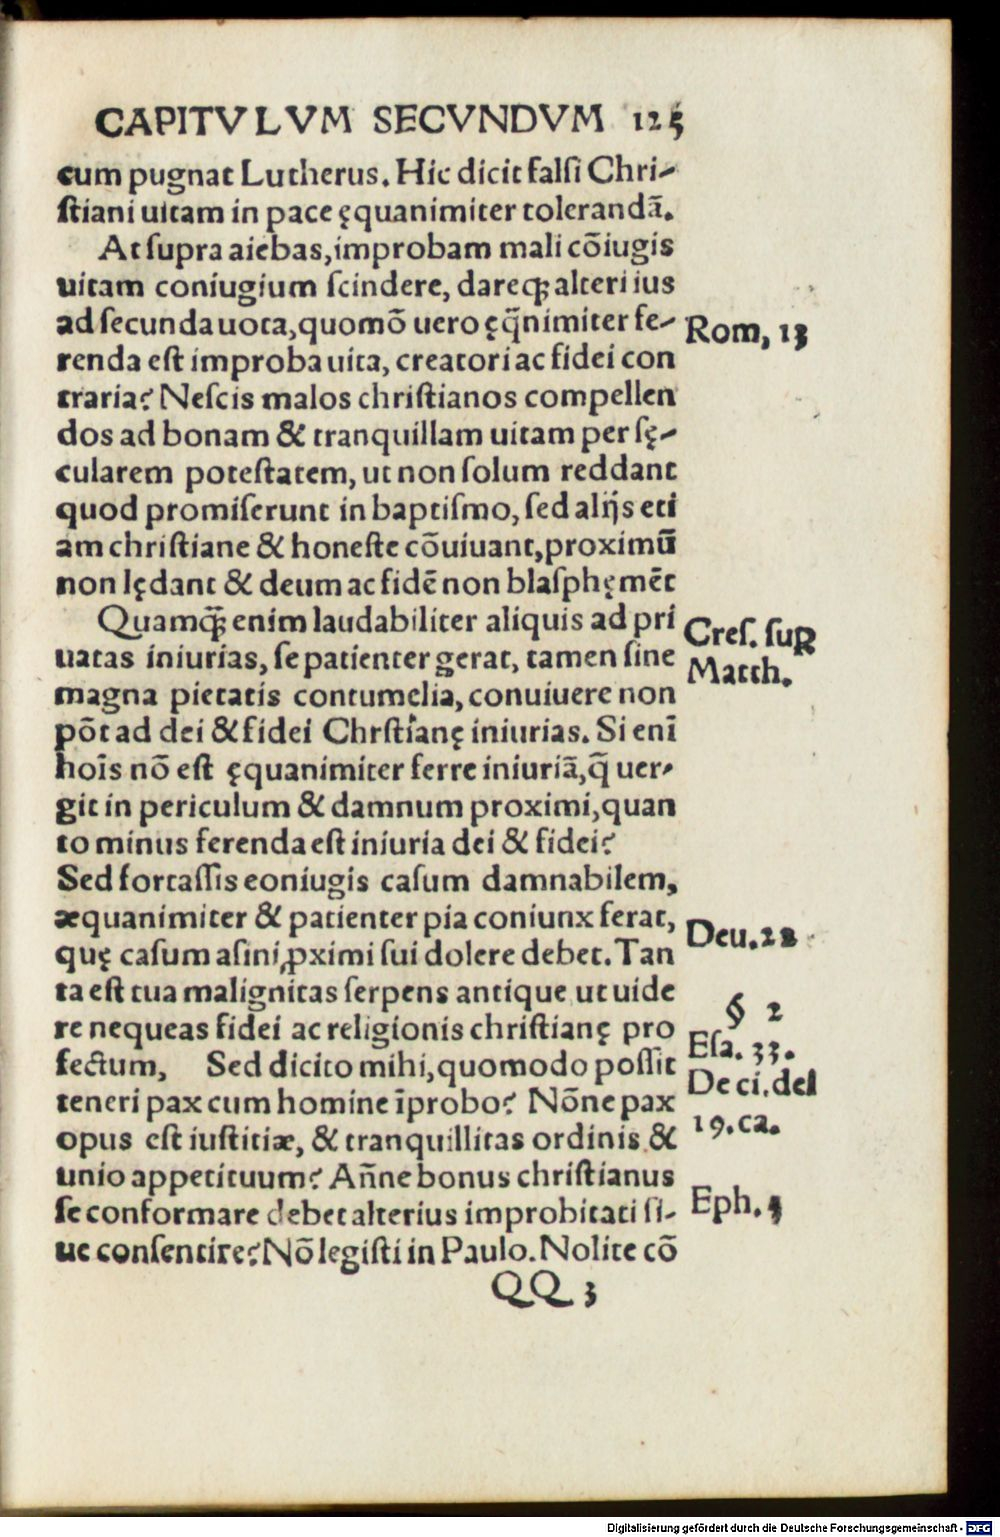 CAPITVLVM SECVNDVM 125
cum pugnat Lutherus. Hic dicit falſi Chri-
ſtiani uitam in pace ęquanimiter tolerandã.
At ſupra aiebas, improbam mali cõiugis
uitam coniugium ſcindere, dareq́ꝫ alteri ius
ad ſecunda uota, quomõ uero ęq̃nimiter fe-
renda eſt improba uita, creatori ac fidei con
traria? Neſcis malos chriſtianos compellen
dos ad bonam & tranquillam uitam per ſę-
cularem poteſtatem, ut non ſolum reddant
quod promiſerunt in baptiſmo, ſed alijs eti
am chriſtiane & honeſte cõuiuant, proximũ
non lędant & deum ac fidẽ non blaſphęmẽt
Quamq̃ꝫ enim laudabiliter aliquis ad pri
uatas iniurias, ſe patienter gerat, tamen ſine
magna pietatis contumelia, conuiuere non
põt ad dei & fidei Chrſtianę iniurias. Si enĩ
hoĩs nõ eſt ęquanimiter ferre iniuriã, q̃ uer-
git in periculum & damnum proximi, quan
to minus ferenda eſt iniuria dei & fidei?
Sed fortaſſis eoniugis caſum damnabilem,
æquanimiter & patienter pia coniunx ferat,
quę caſum aſini, ꝓximi ſui dolere debet. Tan
ta eſt tua malignitas ſerpens antique ut uide
re nequeas fidei ac religionis chriſtianę pro
fectum, Sed dicito mihi, quomodo poſſit
teneri pax cum homine ĩprobo? Nõne pax
opus eſt iuſtitiæ, & tranquillitas ordinis &
unio appetituum? Añne bonus chriſtianus
ſe conformare debet alterius improbitati ſi-
ue conſentire? Nõ legiſti in Paulo. Nolite cõ
QQ 3
Rom, 13
Creſ. ſuꝑ
Matth.
Deu. 22
§ 2
Eſa. 33.
De ci. del
19. ca.
Eph. 5
Digitalisierung gefördert durch die Deutsche Forschungsgemeinschaft - DFG